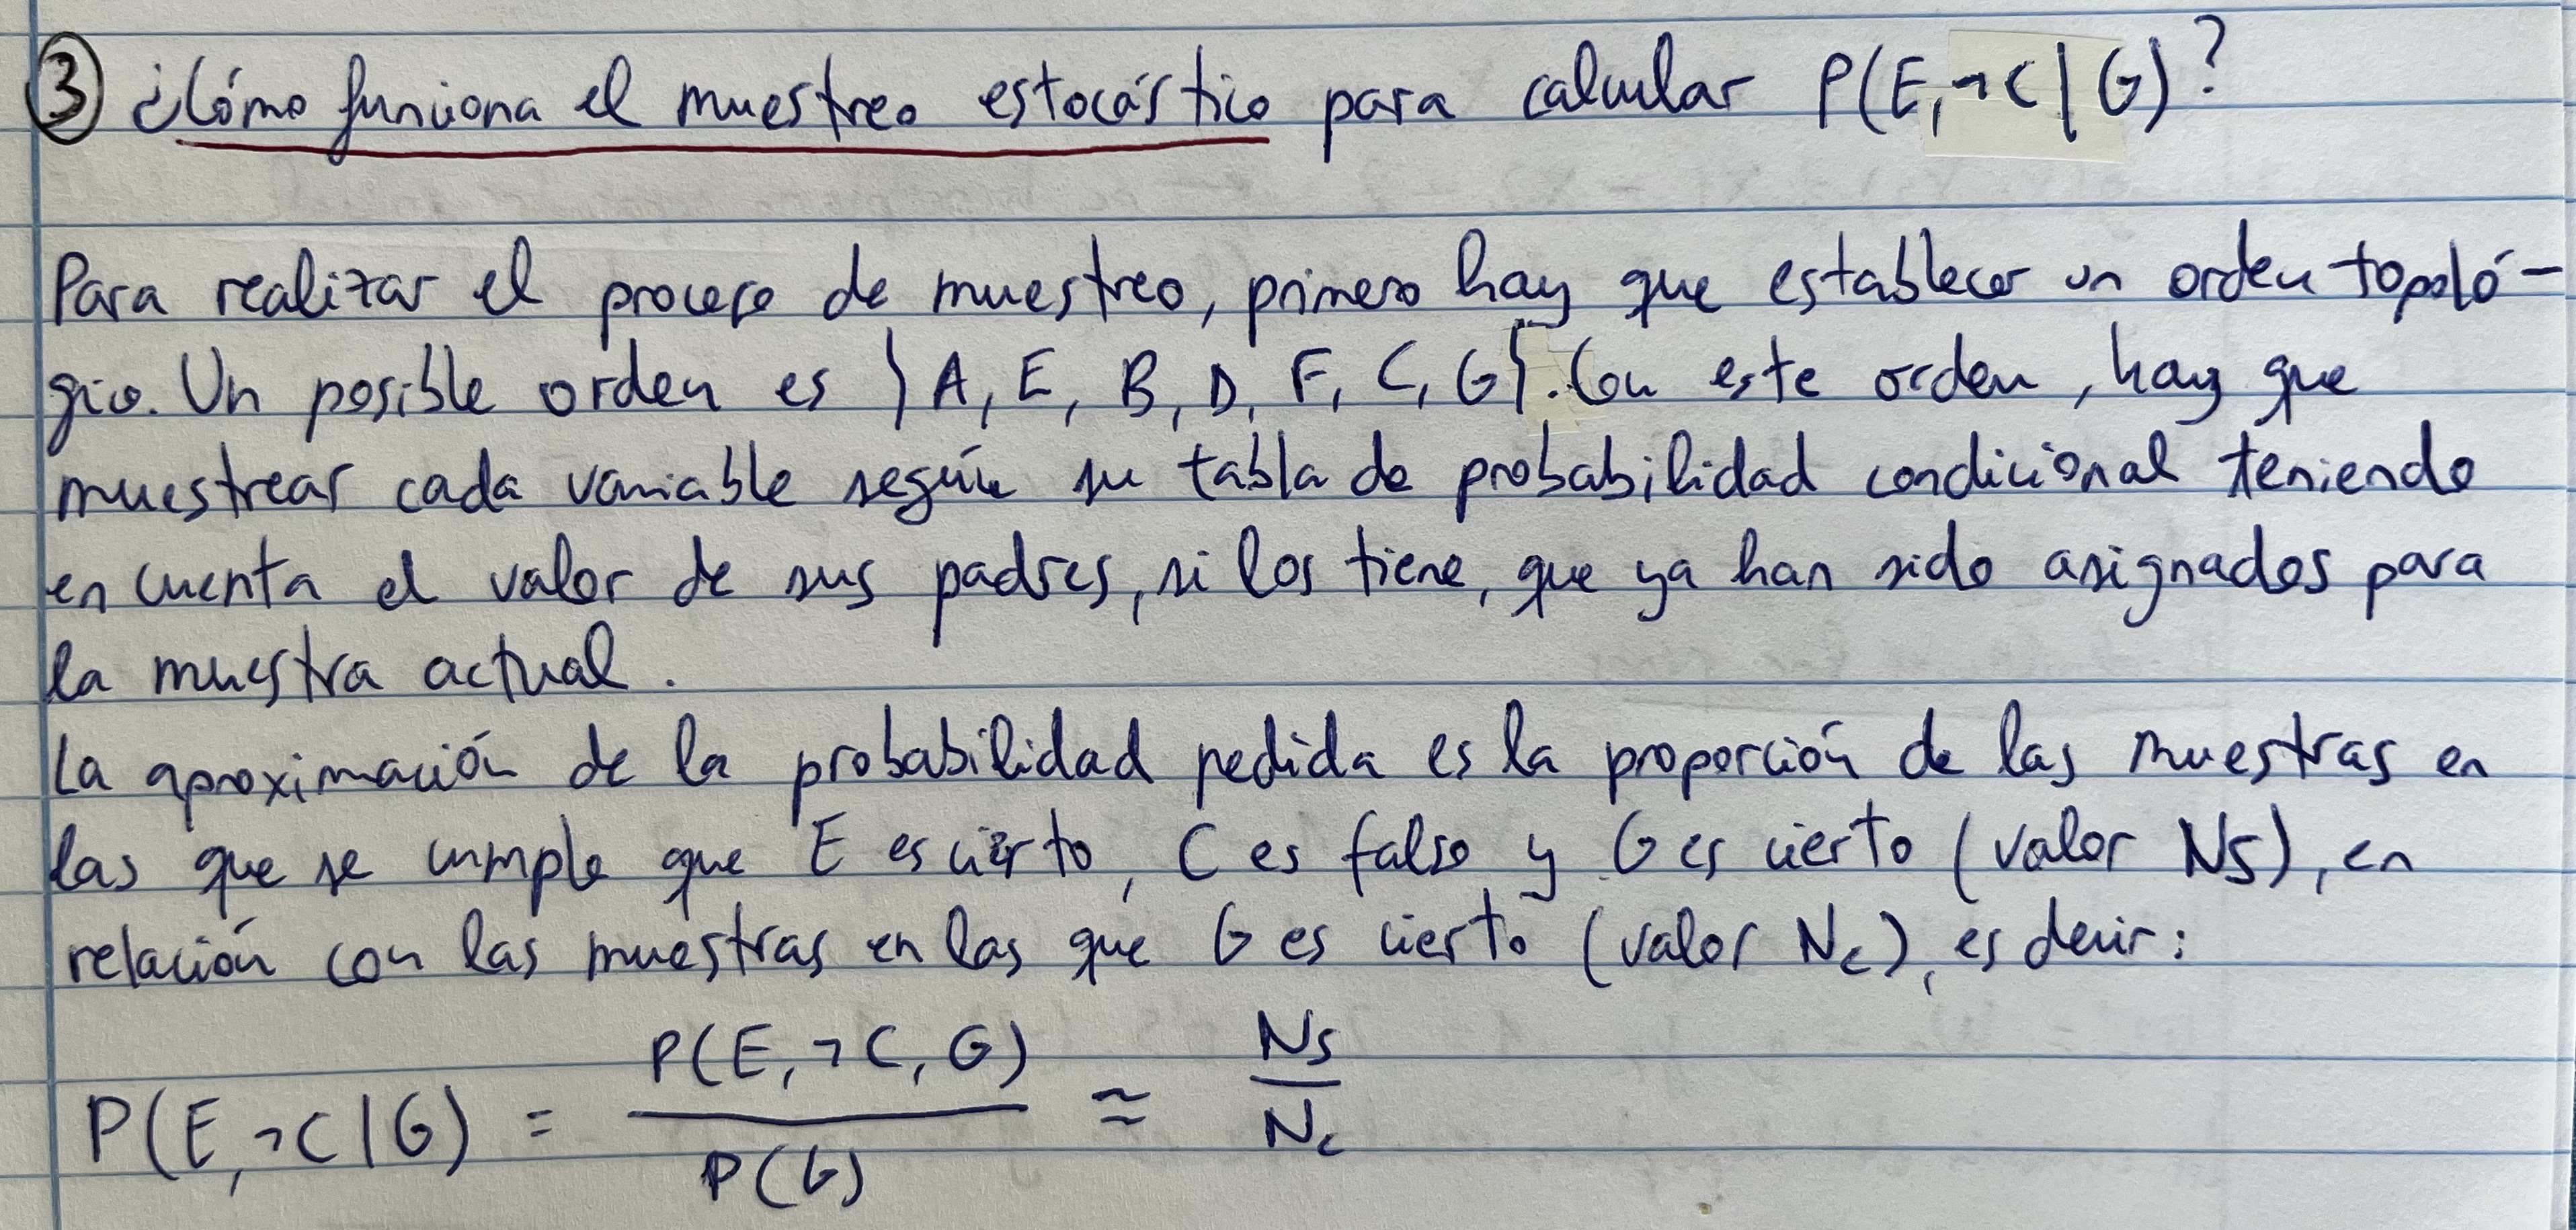 ③ ¿Cómo funciona el muestreo estocástico para calcular P(E,¬C|G)?
Para realizar el proceso de muestreo, primero hay que establecer un orden topoló-
gico. Un posible orden es {A, E, B, D, F, C, G}. Con este orden, hay que
muestrear cada variable según su tabla de probabilidad condicional teniendo
en cuenta el valor de sus padres, si los tiene, que ya han sido asignados para
la muestra actual.
La aproximación de la probabilidad pedida es la proporción de las muestras en
las que se cumple que E es cierto, C es falso y G es cierto (valor NS), en
relación con las muestras en las que G es cierto (valor Nc), es decir:
P(E,¬C|G) = P(E,¬C,G) / P(G) ≈ NS / Nc